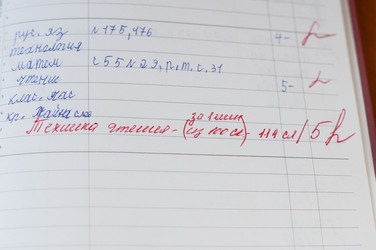 рус. яз №175, 176 4-
технология
матем с 55 №29, р.т. с. 31
чтение 5-
клас. час
кр.
Техника чтения - (за 1 мин из 100 сл) - 114 сл / 5